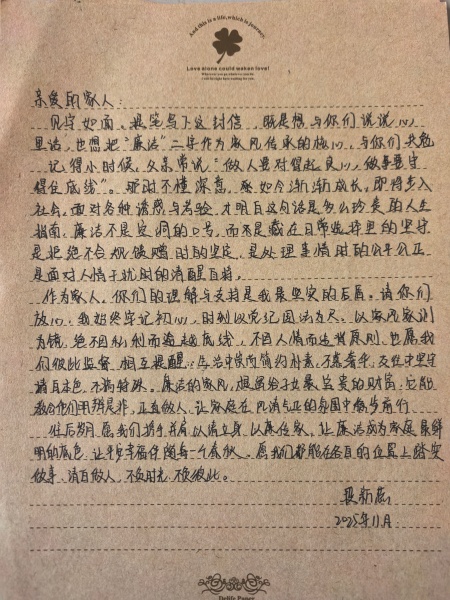 And this is a life, which is journey.
Love alone could waken love!
亲爱的家人：
见字如面。提笔写下这封信，既是想与你们说说心
里话，也想把“廉洁”二字作为家风传承的核心，与你们共勉
记得小时候，父亲常说“做人要对得起良心，做事要守
得住底线”。那时不懂深意，如今渐渐成长，即将步入
社会，面对各种诱惑与考验，才明白这句话是多么珍贵的人生
指南。廉洁不是空洞的口号，而是藏在日常点滴里的坚守
是拒绝不合规馈赠时的坚定，是处理事情时的公平公正
是面对人情干扰时的清醒自持。
作为家人，你们的理解与支持是我最坚实的后盾。请你们
放心，我始终牢记初心，时刻以党纪国法为尺，以家风家训
为镜，绝不因私利而逾越底线，不因人情而违背原则，也愿我
们彼此监督，相互提醒：生活中崇尚简约朴素，不慕奢华，交往中坚守
清白本色，不搞特殊。廉洁的家风，是留给子女最宝贵的财富，它能
教会他们明辨是非，正直做人，让家庭在风清气正的氛围中稳步前行
往后岁月，愿我们携手并肩，以清立身，以廉传家，让廉洁成为家庭最鲜
明的底色，让平安幸福伴随每一个家人。愿我们都能在各自的位置上踏实
做事，清白做人，不负时光，不负彼此。
新燕
2025年11月
Tielife Paper